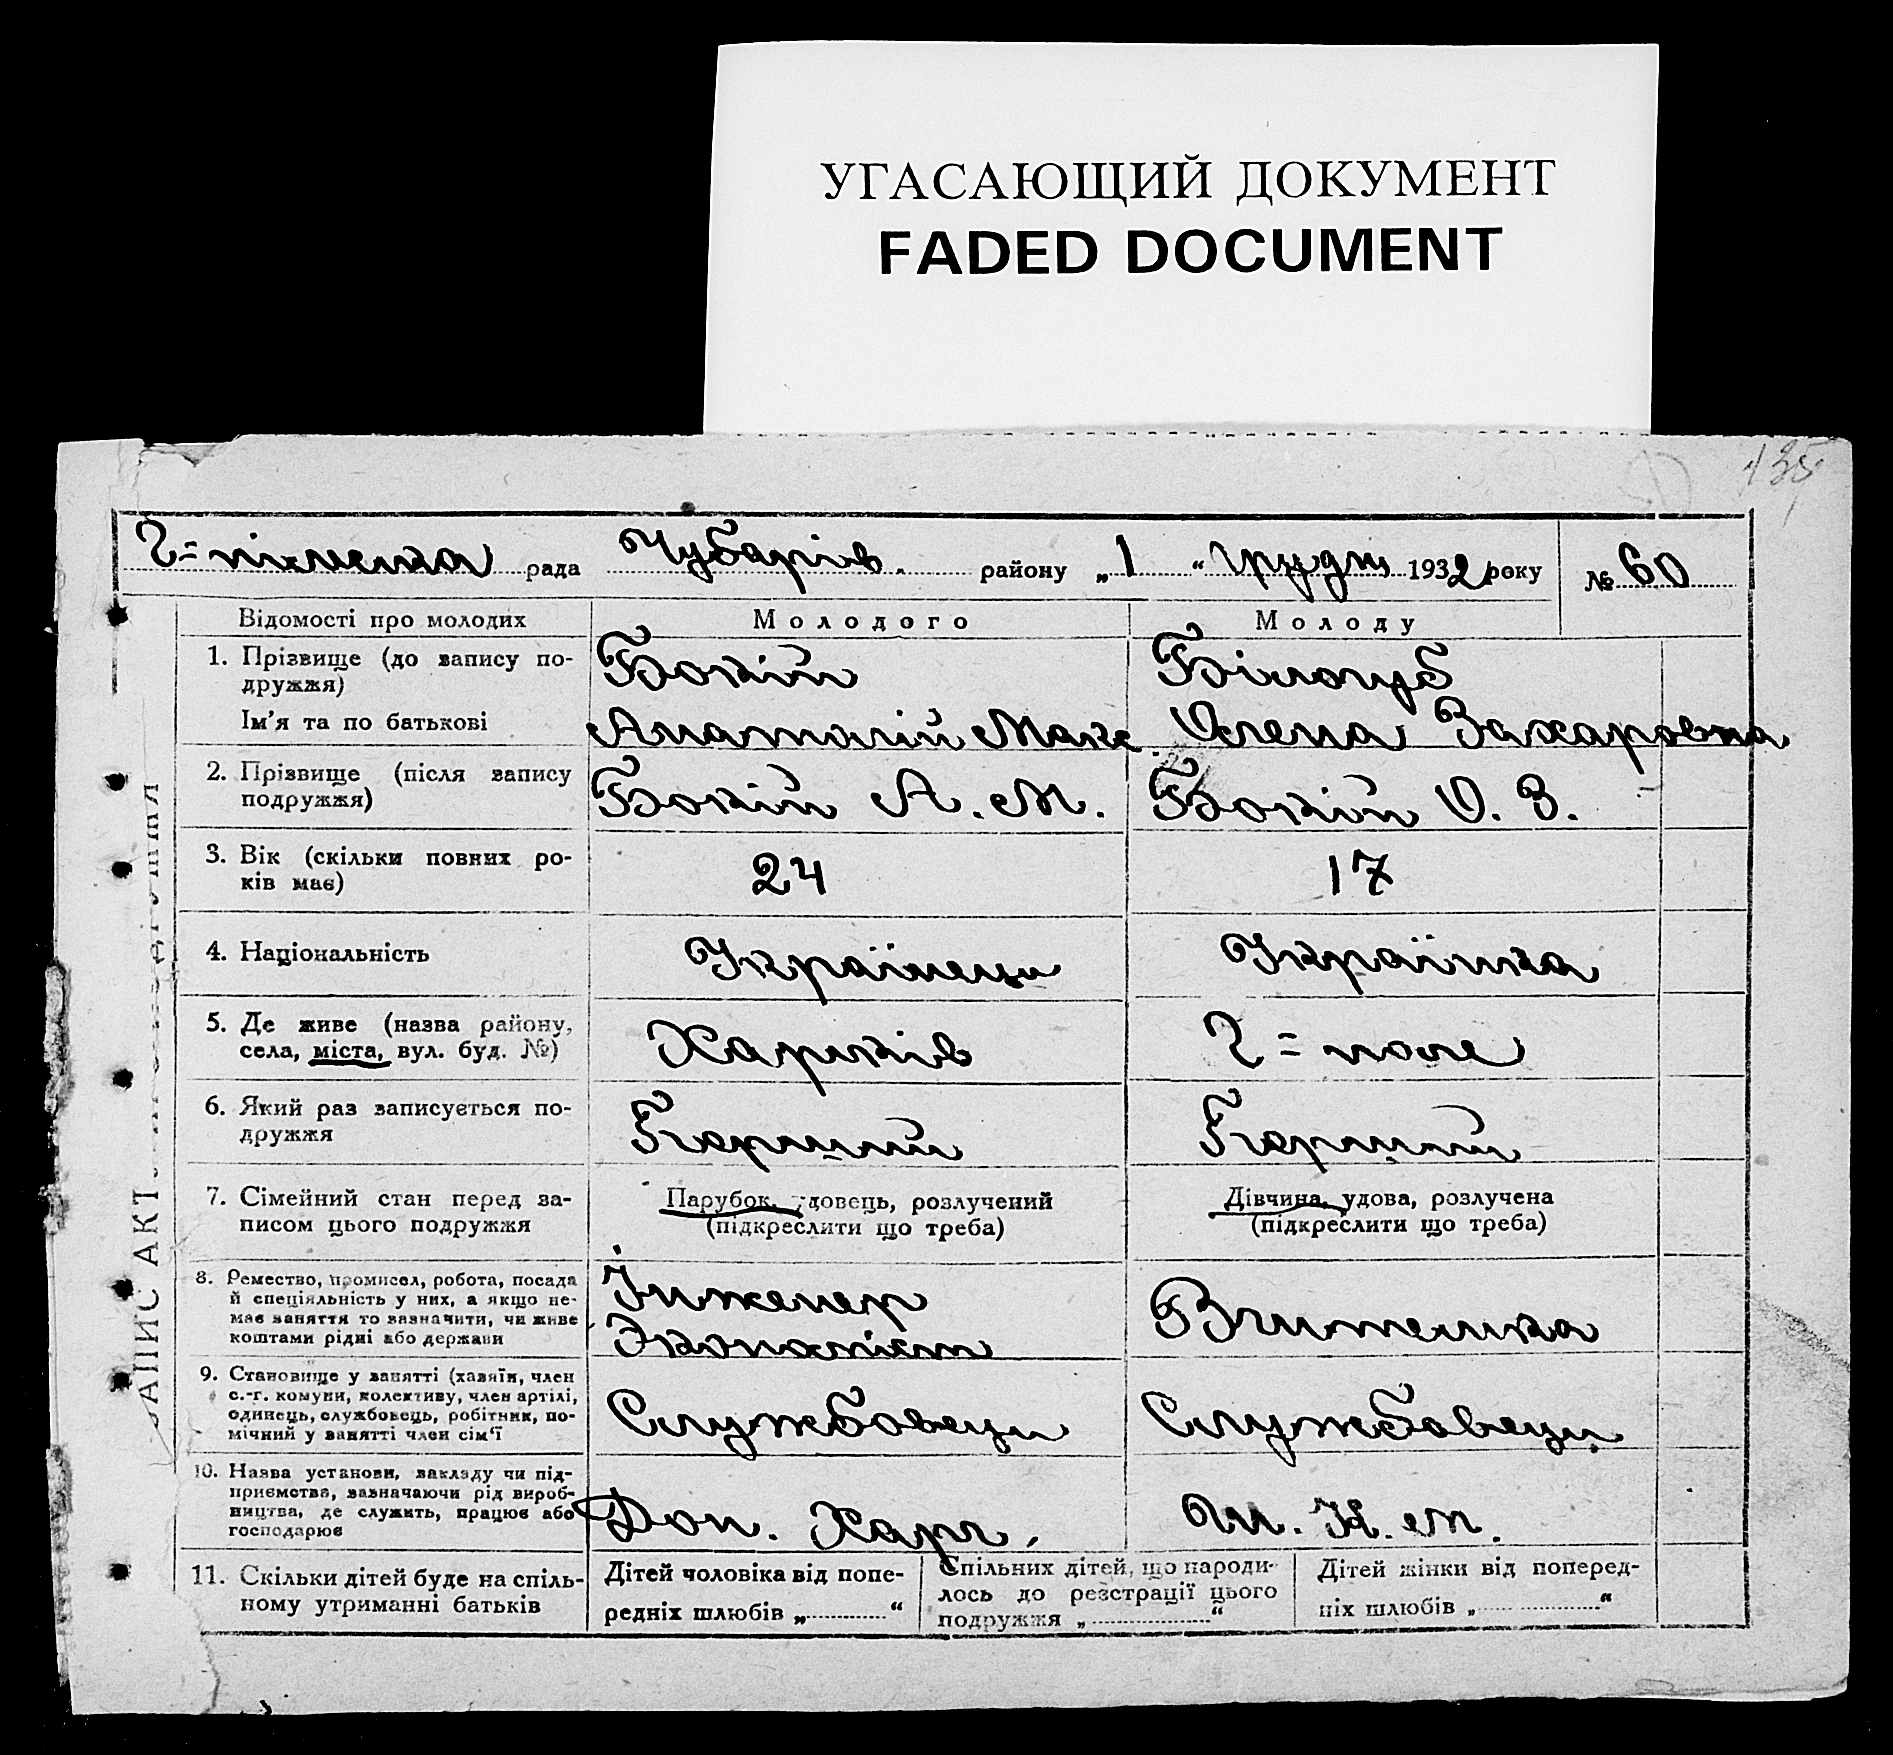 УГАСАЮЩИЙ ДОКУМЕНТ
FADED DOCUMENT
135
рада Чубарів. району „1“ грудн 1932 року № 60
Відомості про молодих
Молодого
Молоду
1. Прізвище (до запису по-
дружжя)
Ім’я та по батькові
Бокій
Анатолій Макс.
Білоцуб
Олена Захаровна
2. Прізвище (після запису
подружжя)
Бокій А. М.
Бокій О. З.
3. Вік (скільки повних ро-
ків має)
24
17
4. Національність
Українець
Українка
5. Де живе (назва району,
села, міста, вул. буд. №)
Харьків
Г = поле
6. Який раз записується по-
дружжя
Перший
Перший
7. Сімейний стан перед за-
писом цього подружжя
Парубок, удовець, розлучений
(підкреслити що треба)
Дівчина, удова, розлучена
(підкреслити що треба)
8. Ремество, промисел, робота, посада
й спеціяльність у них, а якщо не-
має заняття то зазначити, чи живе
коштами рідні або держави
Інженер
Экономіст
Вчителька
9. Становище у занятті (хазяїн, член
с.-г. комуни, колективу, член артілі,
одинець, службовець, робітник, по-
мічний у занятті член сім’ї
Службовець
Службовець
10. Назва установи, закладу чи під-
приємства, зазначаючи рід вироб-
ництва, де служить, працює або
господарює
Доп. Харч.
11. Скільки дітей буде на спіль-
ному утриманні батьків
Дітей чоловіка від попе-
редніх шлюбів „ “
Спільних дітей, що народи-
лось до реєстрації цього
подружжя „ “
Дітей жінки від поперед-
ніх шлюбів „ “
ЗАПИС АКТ